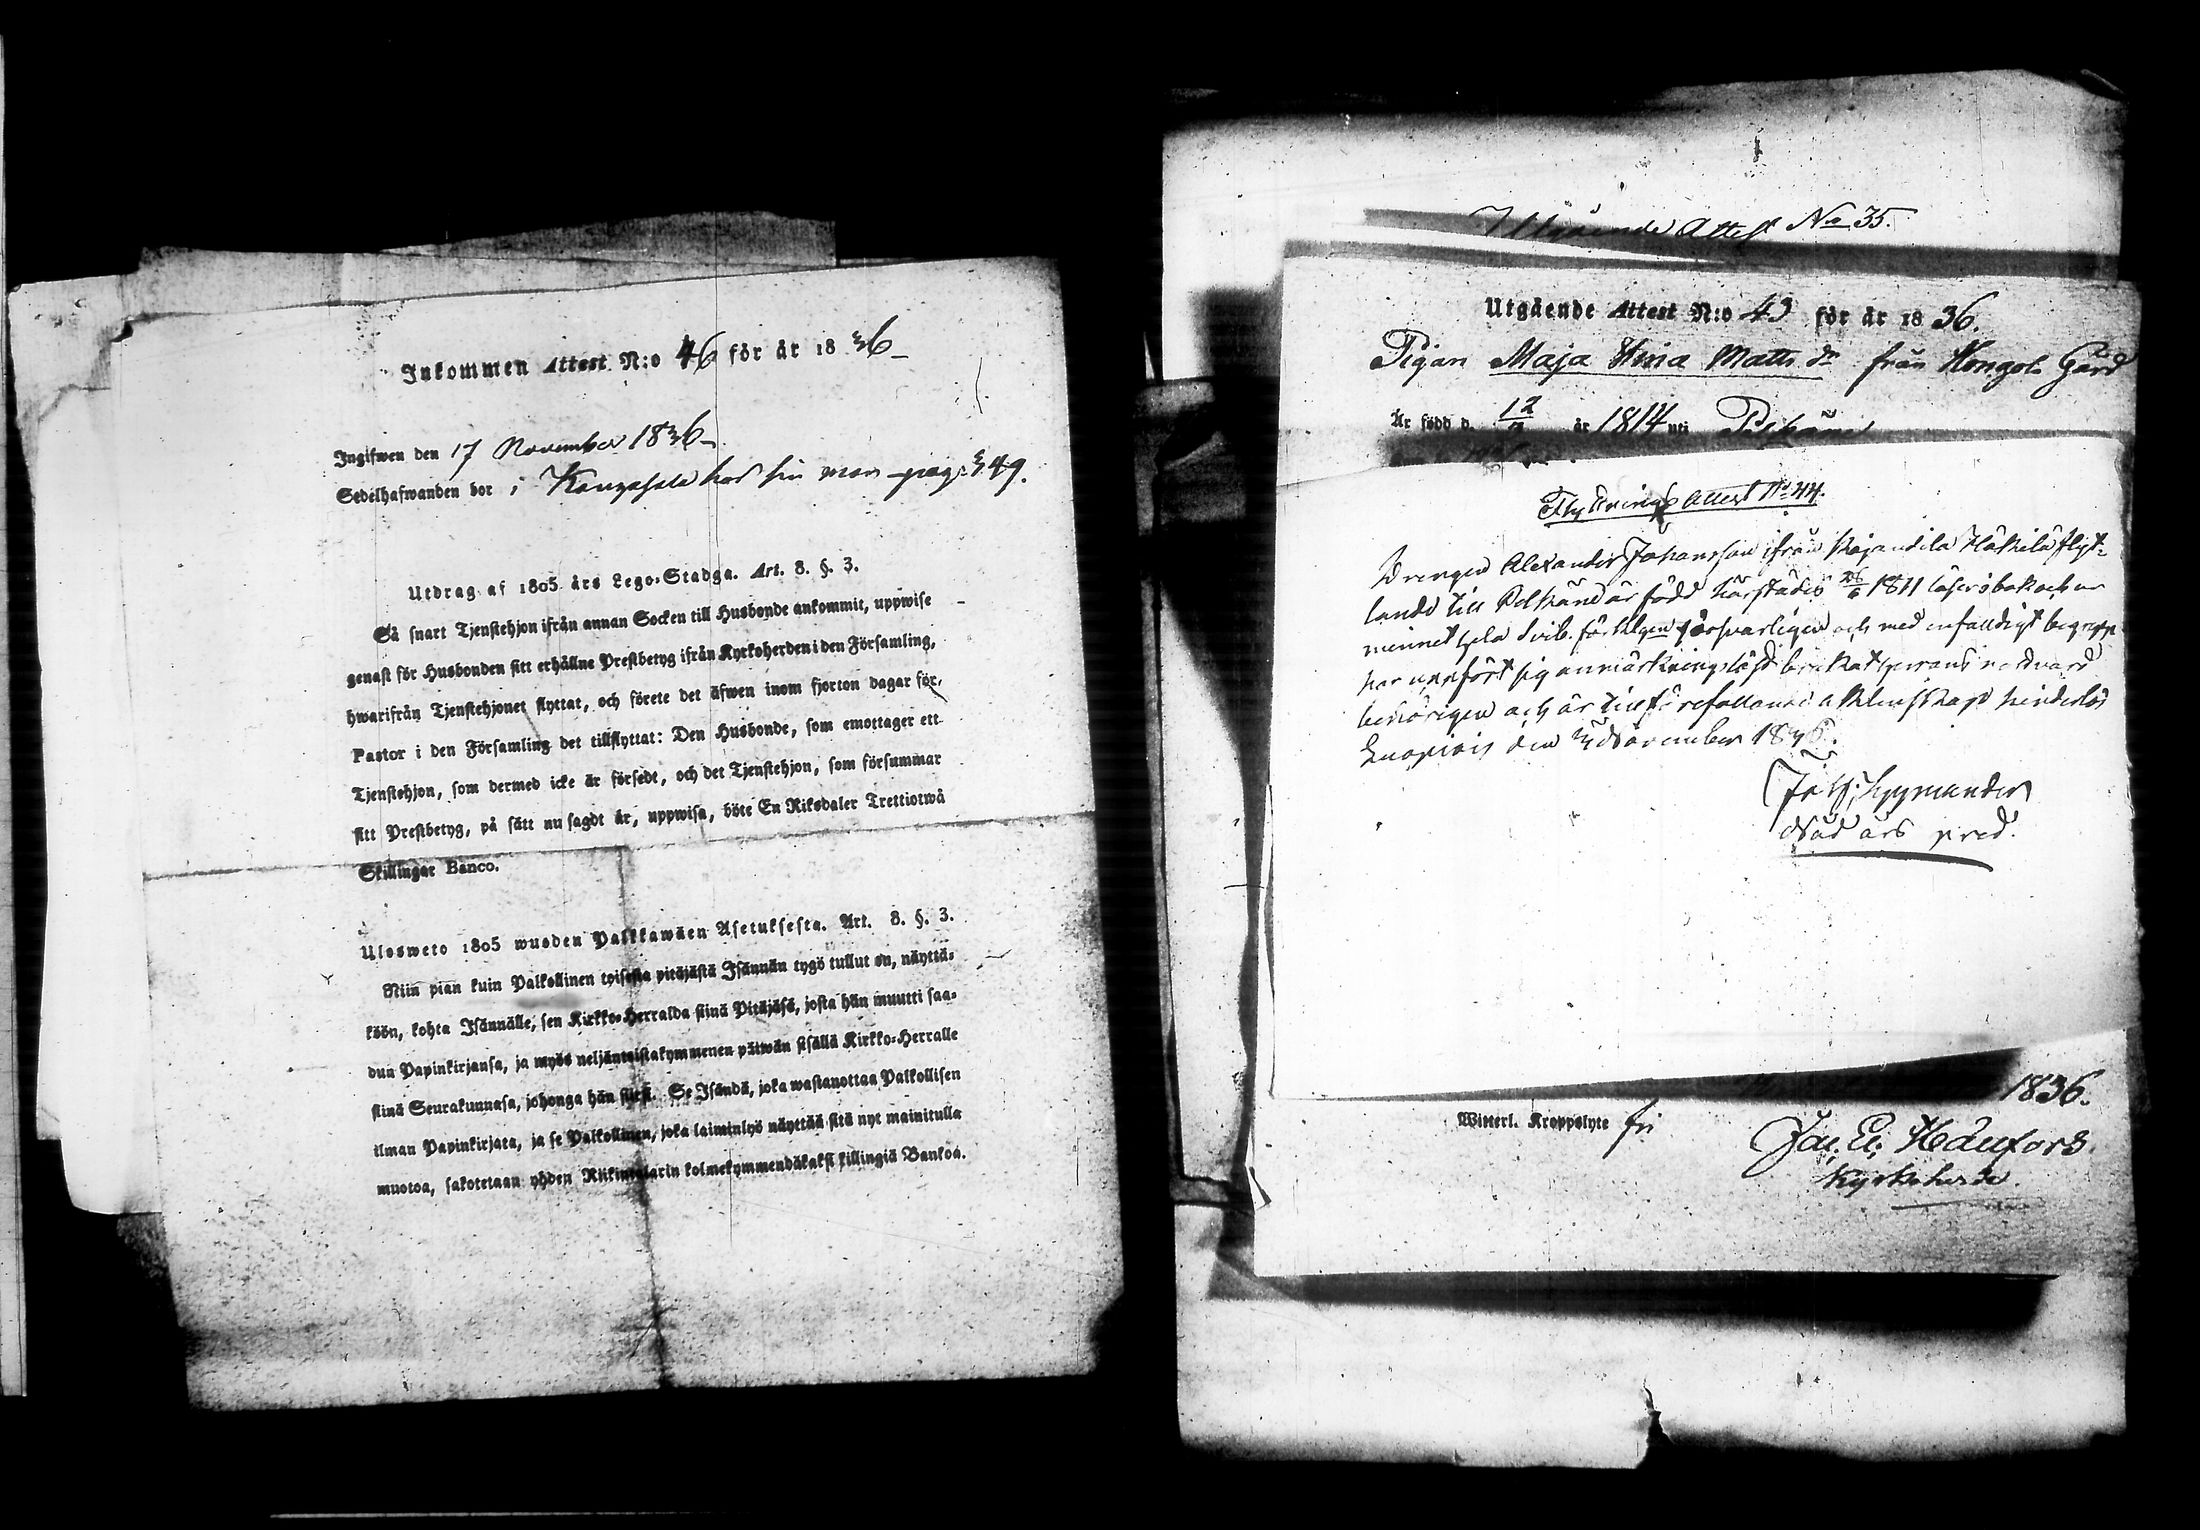 Inkommen Attest N:o 46 för år 1836
Ingifwen den 17 November 1836
Sedelhafwanden bor i Kangasala hos sin man pag. 349.
Utdrag af 1805 års Lego-Stadga. Art. 8. §. 3.
Så snart Tjenstehjon ifrån annan Socken till Husbonde ankommit, uppwise
genast för Husbonden sitt erhållne Prestbetyg ifrån Kyrkoherden i den Församling,
hwarifrån Tjenstehjonet flyttat, och förete det äfwen inom fjorton dagar för
Pastor i den Församling det tillflyttat: Den Husbonde, som emottager ett
Tjenstehjon, som dermed icke är försedt, och det Tjenstehjon, som försummar
sitt Prestbetyg, på sätt nu sagdt är, uppwisa, böte En Riksdaler Trettiotwå
Skillingar Banco.
Ulosweto 1805 wuoden Palkkawäen Asetuksesta. Art. 8. §. 3.
Niin pian kuin Palkollinen toisesta pitäjästä Isännän tygö tullut on, näyttä-
köön, kohta Isännälle, sen Kirkko-Herralda siinä Pitäjäsä, josta hän muutti saa-
dun Papinkirjansa, ja myös neljäntoistakymmenen päiwän sisällä Kirkko-Herralle
siinä Seurakunnasa, johonga hän siirsi. Se Isändä, joka wastanottaa Palkollisen
ilman Papinkirjata, ja se Palkollinen, joka laiminlyö näyttää sitä nyt mainitulla
muotoa, sakotetaan yhden Riikintalarin kolmekymmendäkaksi killingiä Bankoa.
Utgående Attest No 35.
Utgående Attest N:o 43 för år 1836.
Pigan Maja Stina Matts dr från Kongol. Gård
Är född d. 12 år 1814 uti Pelkäne
Flyttnings Attest No 44.
Drengen Alexander Johansson ifrån Häkilä flyt-
tande till Pelkäne är född härstädes 1811 läser i bok och ur
minnet hela försvarligen och med enfalldigt begrepp
har uppfört sig anmärkningslöst brukat
behörigen och är till äktenskap hinderlös
den November 1836.
Joh. Hymander
Nåd års pred.
1836.
Witterl. Kroppslyte fri
Jac. El. Hänfors
Kyrkoherde.